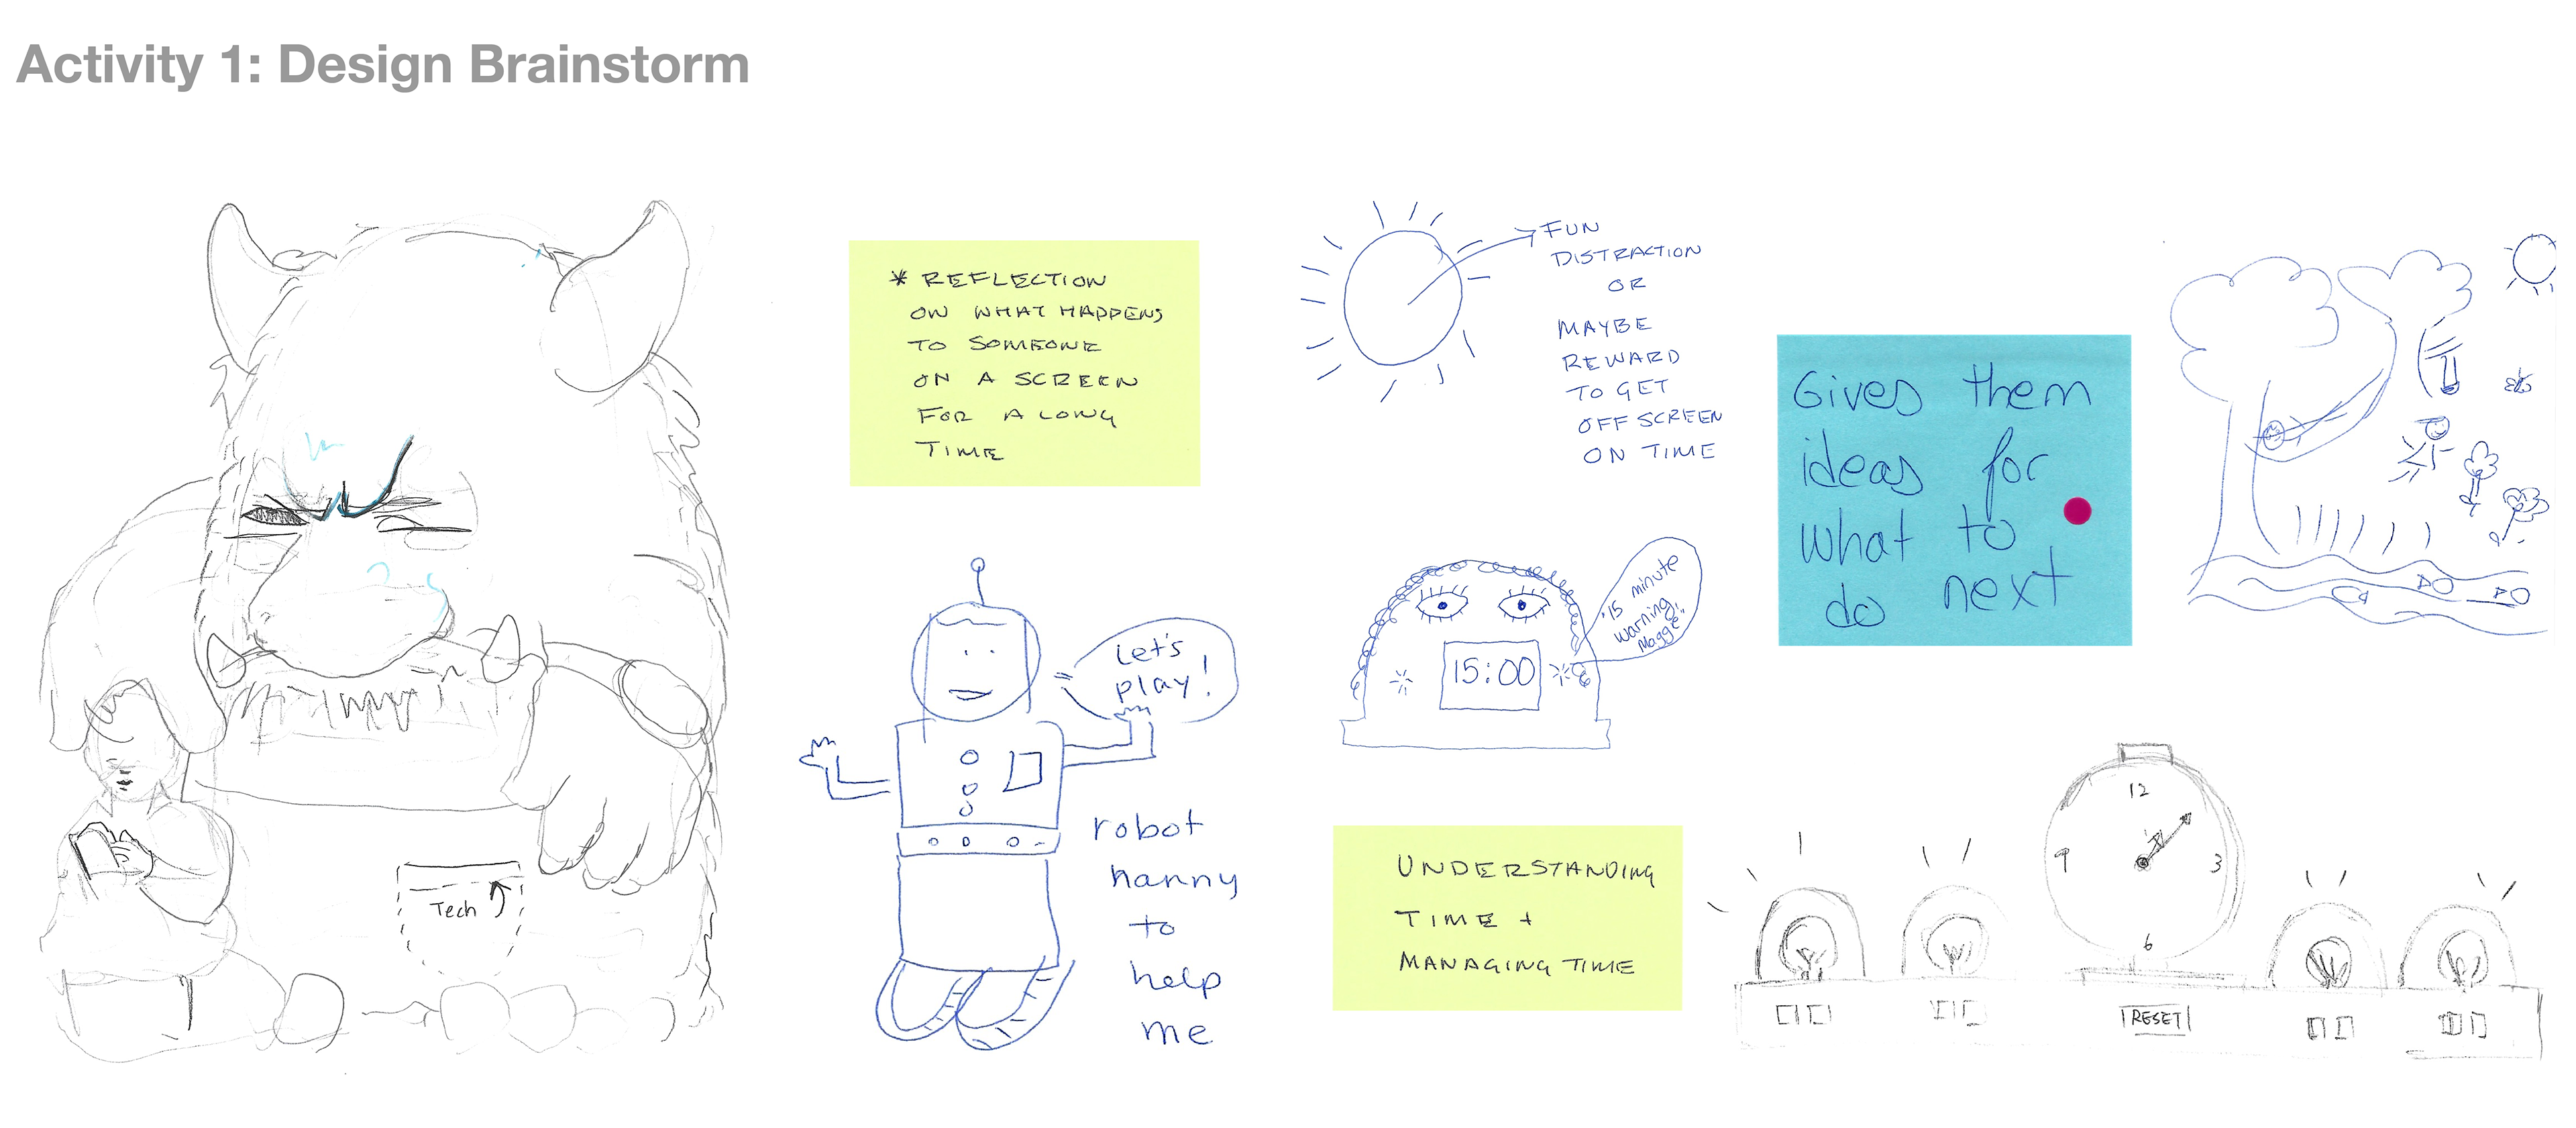 Activity 1: Design Brainstorm
* REFLECTION
ON WHAT HAPPENS
TO SOMEONE
ON A SCREEN
FOR A LONG
TIME
FUN
DISTRACTION
OR
MAYBE
REWARD
TO GET
OFF SCREEN
ON TIME
Gives them
ideas for
what to
do next
Let's
play!
robot
nanny
to
help
me
15 minute
warning
Maggie!
15:00
UNDERSTANDING
TIME +
MANAGING TIME
Tech
12
9
3
6
RESET